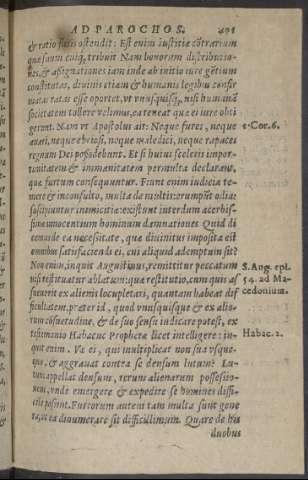 AD PAROCHOS. 491
& ratio satis ostendit: Est enim iustitiæ cõtrarium
quæ suum cuiq; tribuit Nam bonorum distributio-
nes, & assignationes iam inde ab initio iure gētium
constitutas, diuinis etiam & humanis legibus confir
matas ratas esse oportet, vt vnusquisq;, nisi humanā
societatem tollere velimus, ea teneat quæ ei iure obti
gerint. Nam vt Apostolus ait: Neque fures, neque
auari, neque ebriosi, neque maledici, neque rapaces
regnum Dei possidebunt. Et si huius sceleris impor-
tunitatem & immanitatem permulta declarant,
quæ furtum consequuntur. Fiunt enim iudicia te-
mere & inconsulto, multa de multis: erumpūt odia:
suscipiuntur inimicitiæ: existunt interdum acerbis-
simæ innocentium hominum damnationes Quid di
cemus de ea necesitate, quæ diuinitus imposita est
omnibus satisfaciendi ei, cui aliquid ademptum sit?
Non enim, inquit Augustinus, remittitur peccatum
nisi restituatur ablatum: quæ restitutio, cum quis as
sueuerit ex alienis locupletari, quantam habeat dif
ficultatem, præterid, quod vnusquisque & ex alio-
rum cõsuetudine, & de suo sensu iudicare potest, ex
testimonio Habacuc Prophetæ licet intelligere: in-
quit enim. Væ ei, qui multiplicat non sua vsque-
quo, & aggrauat contra se densum lutum? Lu-
tum appellat densum, rerum alienarum possessio-
nem, vnde emergere & expedire se homines diffi-
cile possint. Furtorum autem tam multa sunt gene
ra, vt ea dinumerare sit difficillimum. Quare de his
duobus
1. Cor. 6.
S. Aug. epl.
54. ad Ma-
cedonium.
Habac. 2.